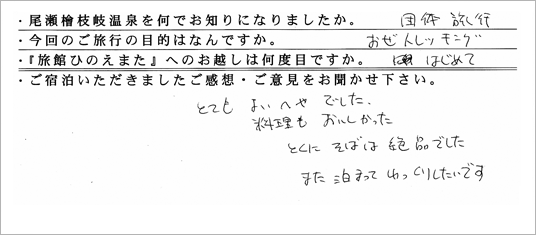 ・尾瀬檜枝岐温泉を何でお知りになりましたか。 団体旅行
・今回のご旅行の目的はなんですか。 おぜトレッキング
・『旅館ひのえまた』へのお越しは何度目ですか。 はじめて
・ご宿泊いただきましたご感想・ご意見をお聞かせ下さい。
とても よいへやでした、
料理も おいしかった
とくに そばは 絶品でした
また 泊まって ゆっくりしたいです